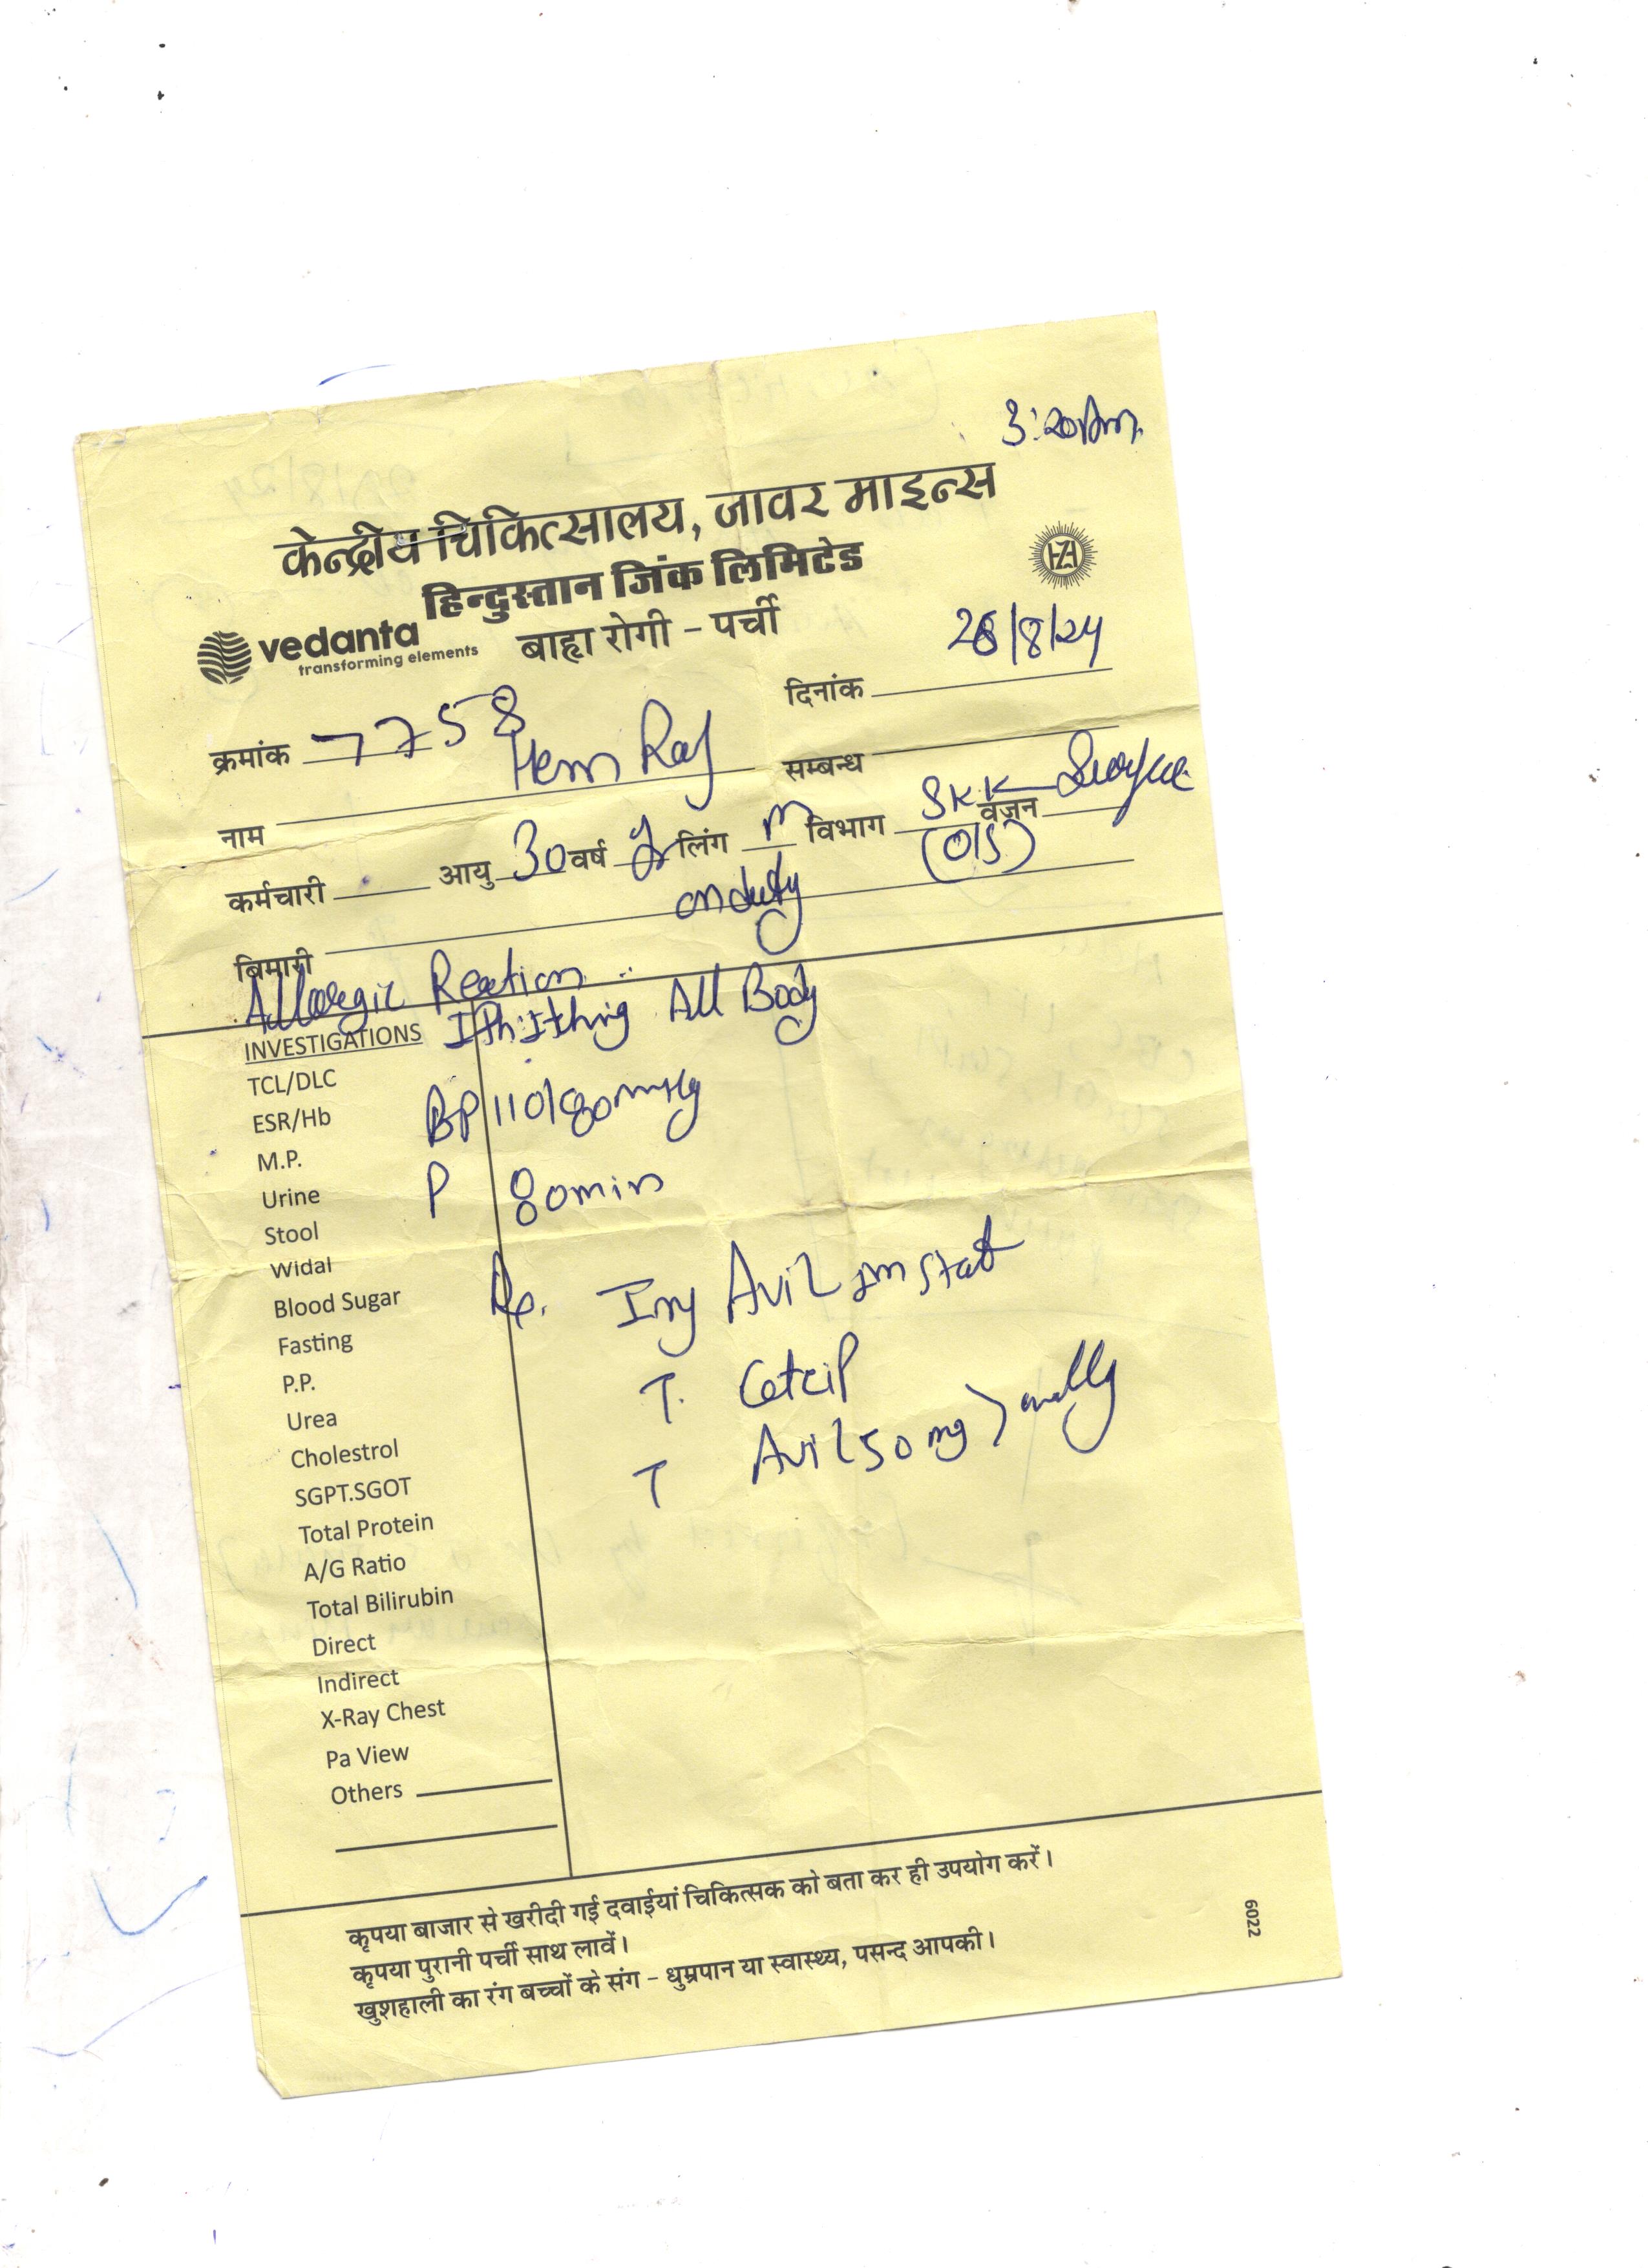 3:20Am
केन्द्रीय चिकित्सालय, जावर माइन्स
हिन्दुस्तान जिंक लिमिटेड
HZ
vedanta
transforming elements
बाह्य रोगी - पर्ची
दिनांक /8/24
क्रमांक 7758
सम्बन्ध
नाम Hem Raj
कर्मचारी आयु 30 वर्ष लिंग m विभाग SKK वज़न
(O/S)
बिमारी onduty
Allergic Reation
INVESTIGATIONS Itthing All Body
TCL/DLC
ESR/Hb BP 110/80mmHg
M.P.
Urine P 80min
Stool
Widal
Blood Sugar Inj Avil Im stat
Fasting
P.P. T. Cetrip
Urea
Cholestrol T Avil 50 mg
SGPT.SGOT
Total Protein
A/G Ratio
Total Bilirubin
Direct
Indirect
X-Ray Chest
Pa View
Others
कृपया बाजार से खरीदी गई दवाईयां चिकित्सक को बता कर ही उपयोग करें।
कृपया पुरानी पर्ची साथ लावें।
खुशहाली का रंग बच्चों के संग - धुम्रपान या स्वास्थ्य, पसन्द आपकी।
6022